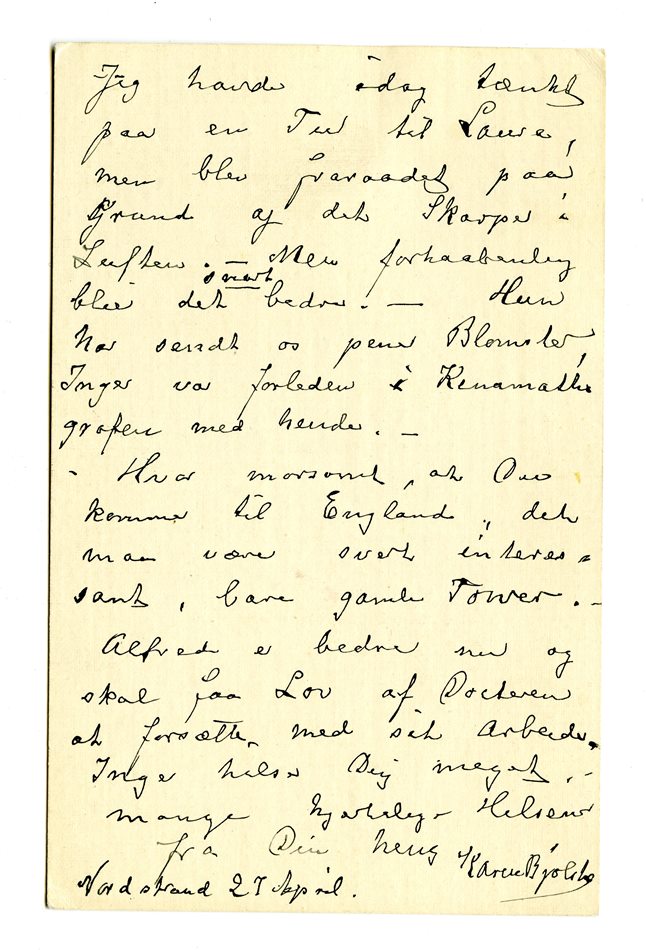 Jeg havde idag tænkt
paa en Tur til Laura,
men blev fraraadet paa
Grund af det Skarpe i
Luften. — Men forhaabentlig
snart
blir det bedre. — Hun
har sendt os pene Blomster,
Inger var forleden i Kenamatho
grafen med hende. —
- Hvor morsomt, at Du
kommer til England, det
maa være svert interes=
sant, bare gamle Tower. —
Alfred er bedre nu og
skal faa Lov af Docteren
at forsætte med sit Arbeide.
Inger hilser Dig meget. —
mange hjertelige Hilsener
fra Din heng
Karen
Nordstrand 27 April.